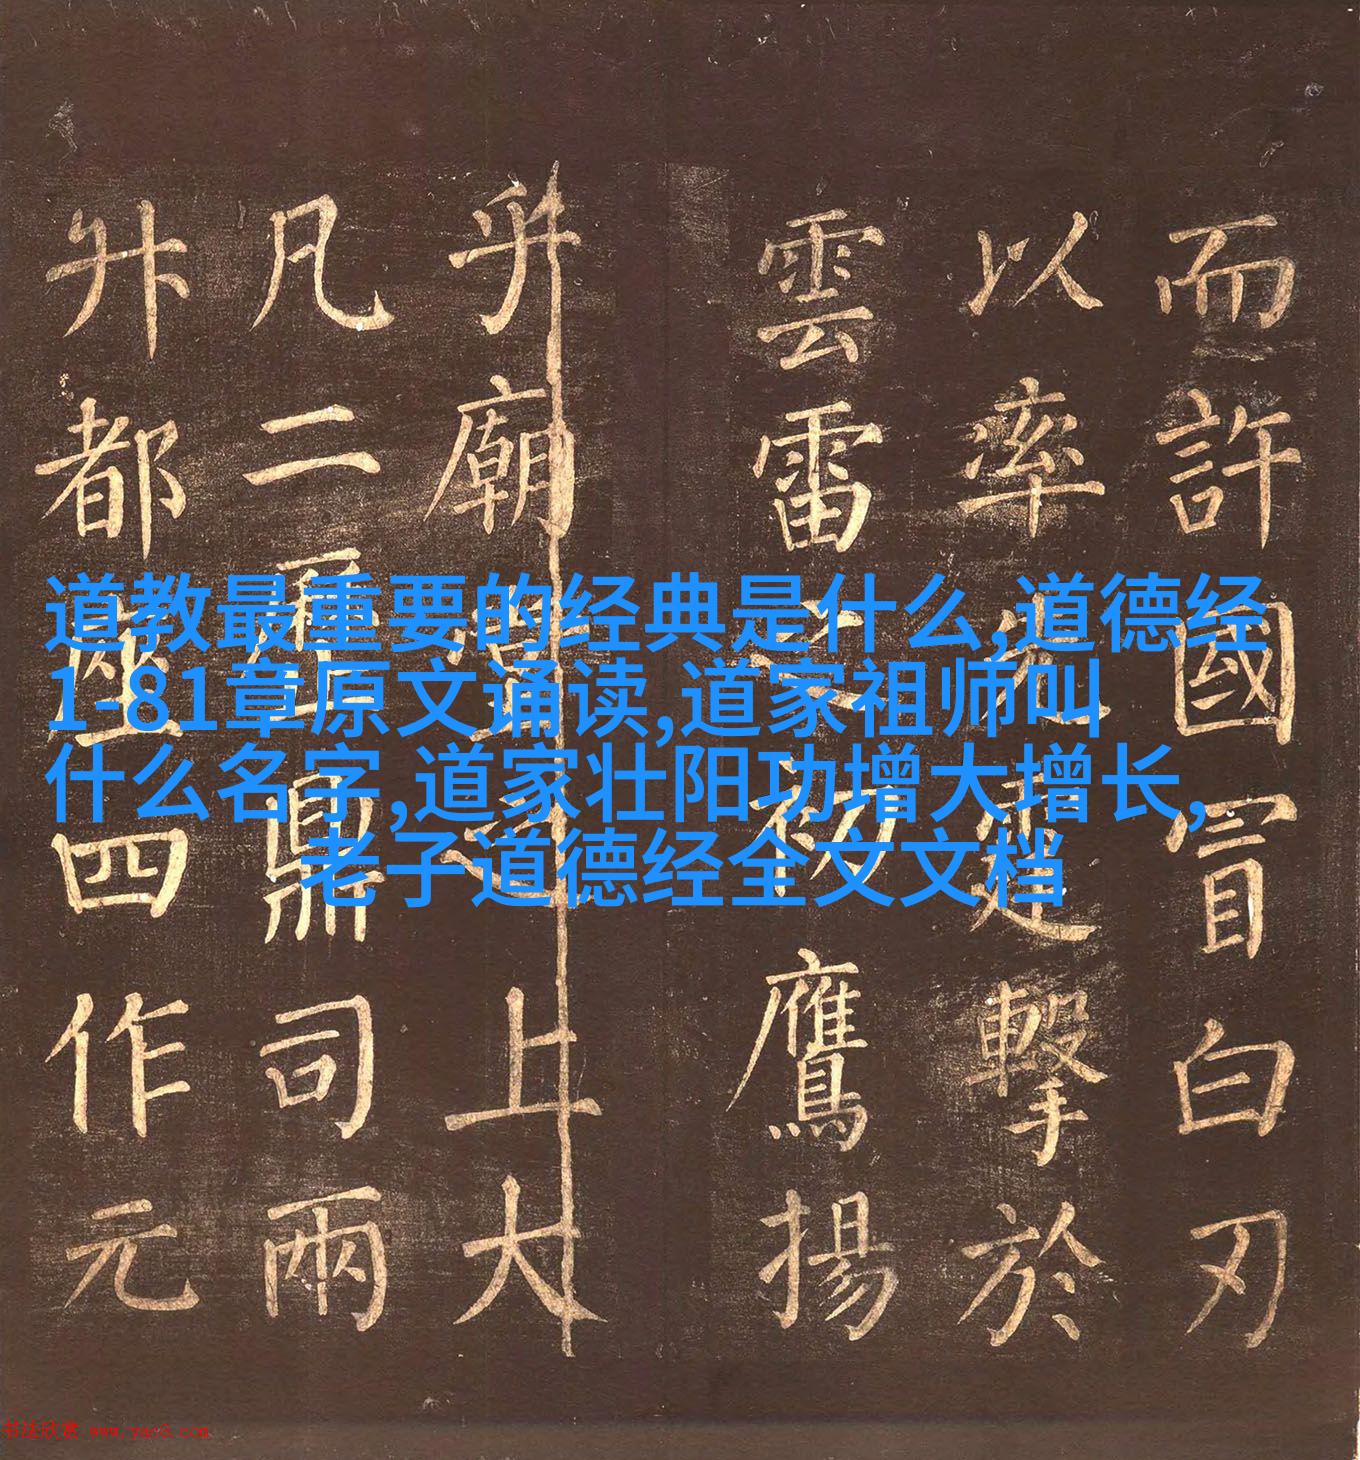 道教最重要的经典是什么,道德经
1-81章原文诵读,道家祖师叫
什么名字,道家壮阳功增大增长,
老子道德经全文文档
而許國冒白刃
以率先擊於
雲雷之初鷹揚
乎廟堂之上大
凡二居鼎司兩
升都座四作元
书法欣赏 www.yac8.com